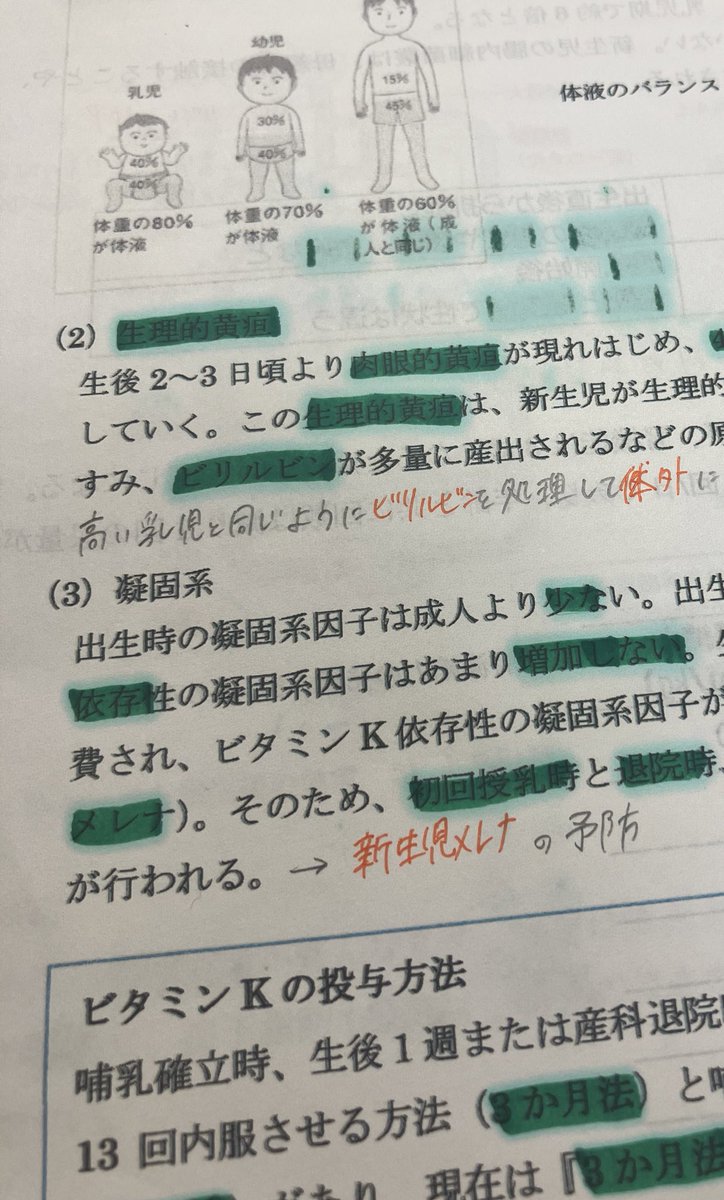 乳児
幼児
40%
40%
30%
40%
15%
45%
体重の80%
が体液
体重の70%
が体液
体重の60%
が体液（成
人と同じ）
体液のバランス
(2) 生理的黄疸
生後2～3日頃より肉眼的黄疸が現れはじめ、
していく。この生理的黄疸は、新生児が生理的
すみ、ビリルビンが多量に産出されるなどの原
高い乳児と同じようにビリルビンを処理して体外に
(3) 凝固系
出生時の凝固系因子は成人より少ない。出生
依存性の凝固系因子はあまり増加しない。生
費され、ビタミンK依存性の凝固系因子が
メレナ）。そのため、初回授乳時と退院時、
が行われる。→ 新生児メレナの予防
ビタミンKの投与方法
哺乳確立時、生後1週または産科退院
13回内服させる方法（3か月法）と哺
があり、現在は『3か月法